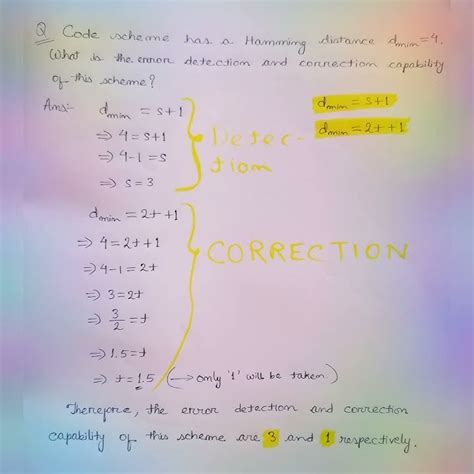 Q Code scheme has a Hamming distance dmin=4.
What is the error detection and correction capability
of this scheme?
Ans:- dmin = s+1
⇒ 4=s+1
⇒ 4-1=s
⇒ s=3
Detec-
tion
dmin = s+1
dmin = 2t+1
dmin = 2t+1
⇒ 4=2t+1
⇒ 4-1=2t
⇒ 3=2t
⇒ 3/2=t
⇒ 1.5=t
⇒ t=1.5 (→ only '1' will be taken.)
CORRECTION
Therefore, the error detection and correction
capability of this scheme are 3 and 1 respectively.